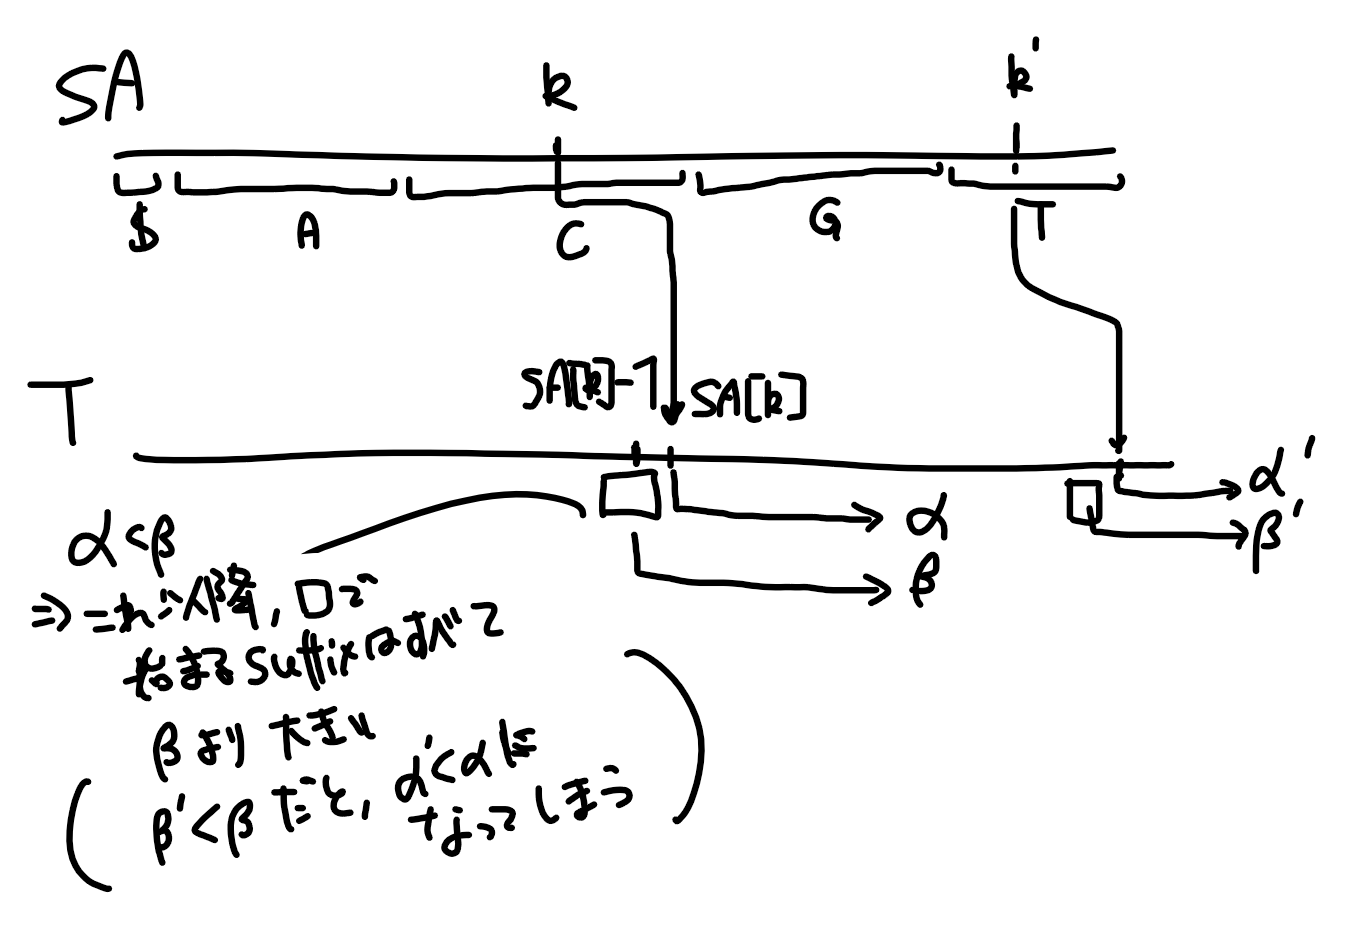 SA
k
k'
$
A
C
G
T
SA[k]-1
SA[k]
T
α
β
α'
β'
α<β
⇒ これ以降, □で
始まるsuffixはすべて
βより大きい
(β'<βだと, α'<αに
なってしまう)